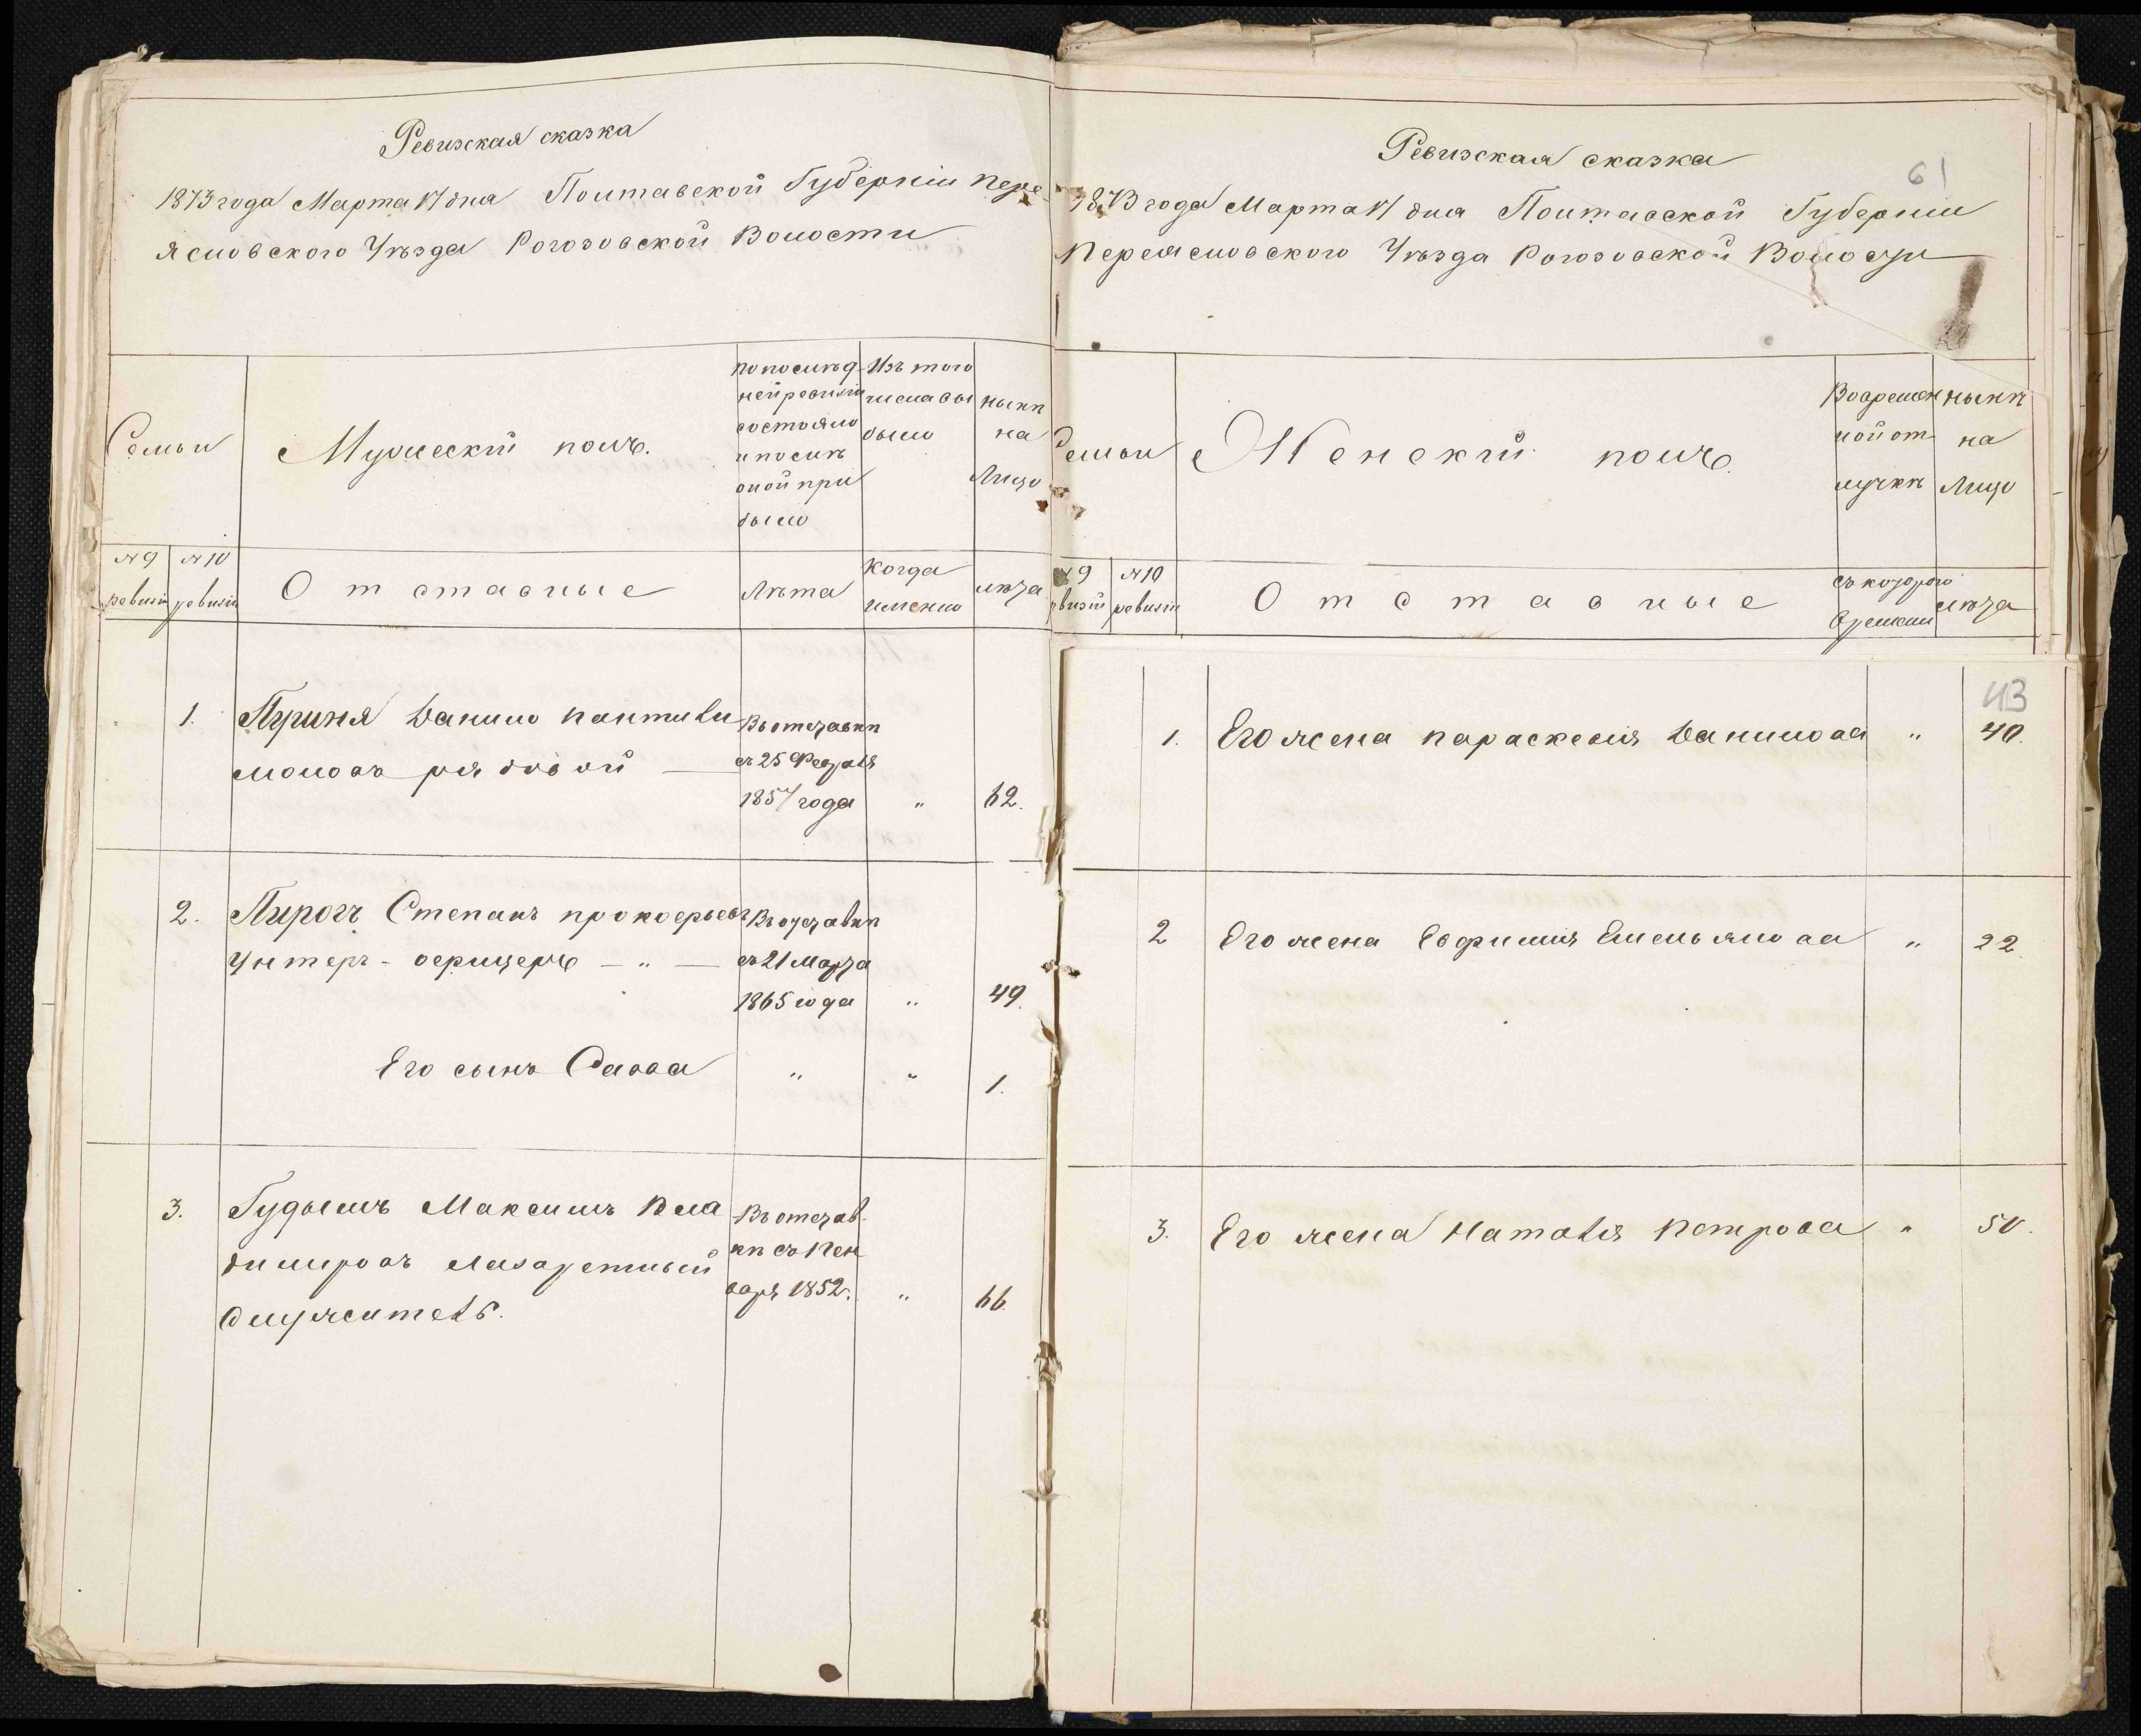 Ревизская сказка
1873 года Марта 17 дня Полтавской Губерніи Пере-
ясловского Уѣзда Рогозовской Волости
Семьи
Мужескій полъ.
по послѣд-
ней ревизіи
состояло
и послѣ
оной при
было
Изъ того
числа вы
было
нынѣ
на
Лицо
№ 9
ревизіи
№ 10
ревизіи
Отставные
Лѣта
Когда
именно
лѣта
1. Пуриня Данило Пантили-
моновъ рядовой —
Въ отставкѣ
съ 25 Февраля
1857 года " 62.
2. Пирогъ Степанъ Прокофьевъ
Унтеръ-офицеръ — " —
Въ отставкѣ
съ 21 Марта
1865 года " 49.
Его сынъ Савва " " 1.
3. Гудымъ Максимъ Вла
диміровъ Лазаретный
Служитель.
Въ отстав-
кѣ съ Ген
варя 1852. " 66.
Ревизская сказка
61
1873 года Марта 17 дня Полтавской Губерніи
Переясловского Уѣзда Рогозовской Волости
Семьи
Женскій полъ.
Во времен
ной от
лучкѣ
нынѣ
на
Лицо
№ 9
ревизіи
№ 10
ревизіи
Отставные
съ котораго
времени
лѣта
43
1. Его жена Параскевія Данилова " 40.
2 Его жена Евфимія Емельянова " 22.
3. Его жена Наталія Петрова " 50.